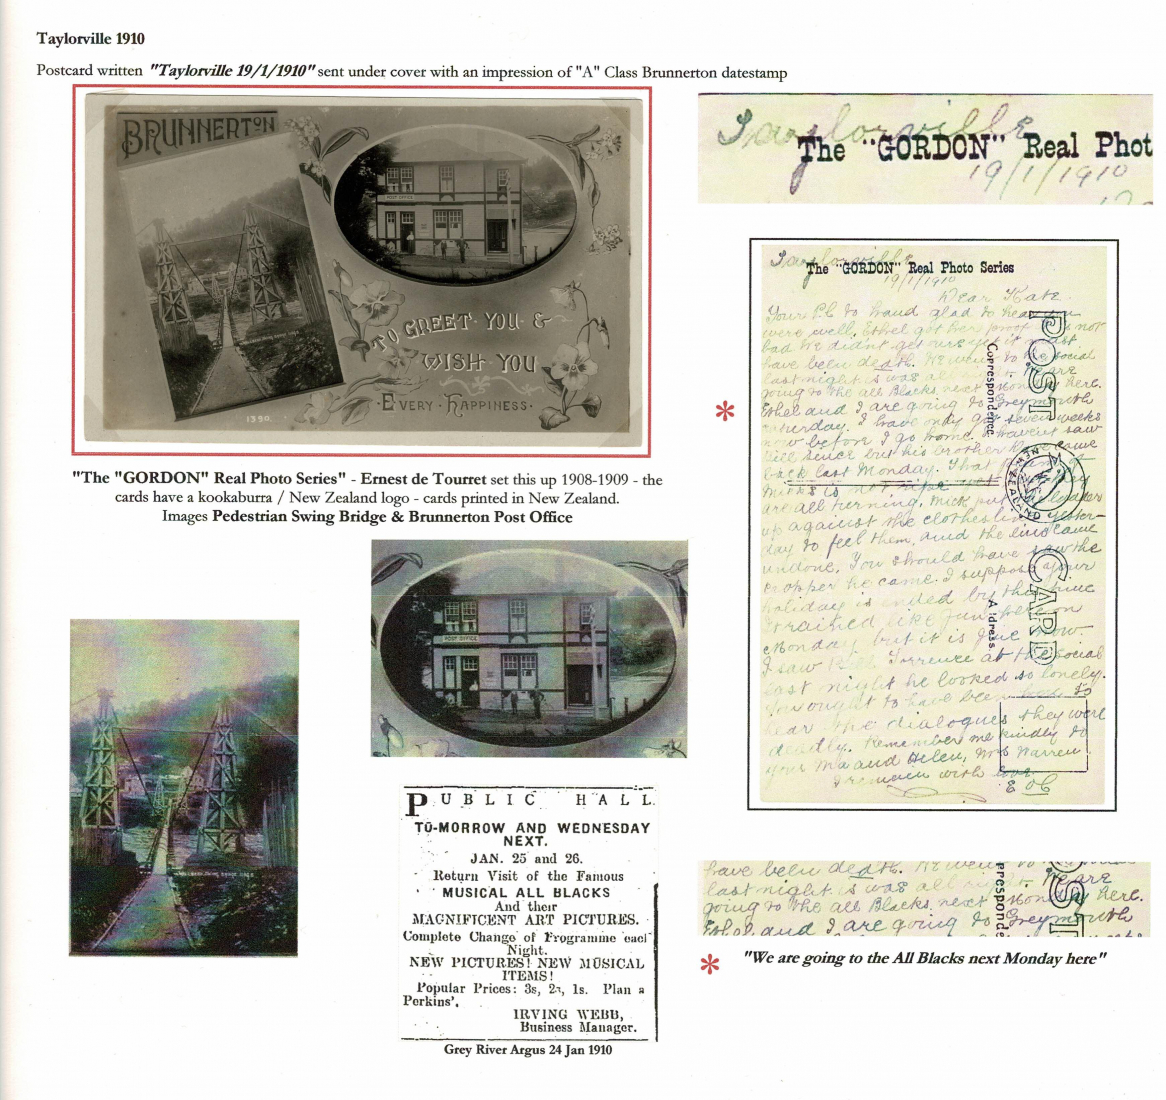 Taylorville 1910
Postcard written "Taylorville 19/1/1910" sent under cover with an impression of "A" Class Brunnerton datestamp
BRUNNERTON
POST OFFICE
TO GREET YOU &
WISH YOU
EVERY HAPPINESS.
1390.
"The "GORDON" Real Photo Series" - Ernest de Tourret set this up 1908-1909 - the
cards have a kookaburra / New Zealand logo - cards printed in New Zealand.
Images Pedestrian Swing Bridge & Brunnerton Post Office
POST OFFICE
PUBLIC HALL.
TO-MORROW AND WEDNESDAY
NEXT.
JAN. 25 and 26.
Return Visit of the Famous
MUSICAL ALL BLACKS
And their
MAGNIFICENT ART PICTURES.
Complete Change of Programme each
Night.
NEW PICTURES! NEW MUSICAL
ITEMS!
Popular Prices: 3s, 2s, 1s. Plan a
Perkins'.
IRVING WEBB,
Business Manager.
Grey River Argus 24 Jan 1910
Taylorville
The "GORDON" Real Phot
19/1/1910
Taylorville
The "GORDON" Real Photo Series
19/1/1910
Dear Kate
Your Pc to hand glad to hear you
were well, Ethel got her proof not
bad We didnt get ours yet it must
have been death. We went to the social
last night is was all right We are
going to the all Blacks next Monday here.
Ethel and I are going to Greymouth
Saturday. I have only got seven weeks
now before I go home. I havent saw
since but his brother came
back last Monday. That
is not
are all turning, Mick put the
up against the clothes line yester-
day to feel them, and the line came
undone. You should have saw the
cropper he came. I suppose your
holiday is ended by this time
It rained like fun here on
Monday but it is fine now.
I saw Bill Torrence at the social
last night he looked so lonely.
You ought to have been to
hear the dialogues they were
deadly. Remember me kindly to
your Ma and Helen, Mrs Warren
I remain with love
POST CARD
Correspondence.
Address.
NEW ZEALAND
have been death. We went to
last night is was all right We are
going to the all Blacks next Monday here.
Ethel and I are going to Greymouth
"We are going to the All Blacks next Monday here"